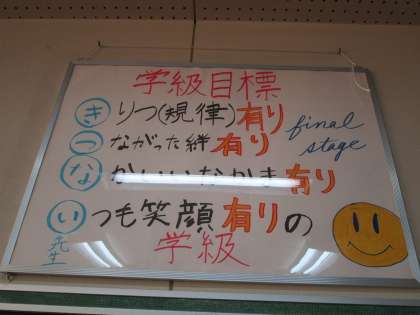 学級目標
きりつ(規律)有り
つながった絆有り
なかいいなかま有り
いつも笑顔有りの
学級
先生
final
stage